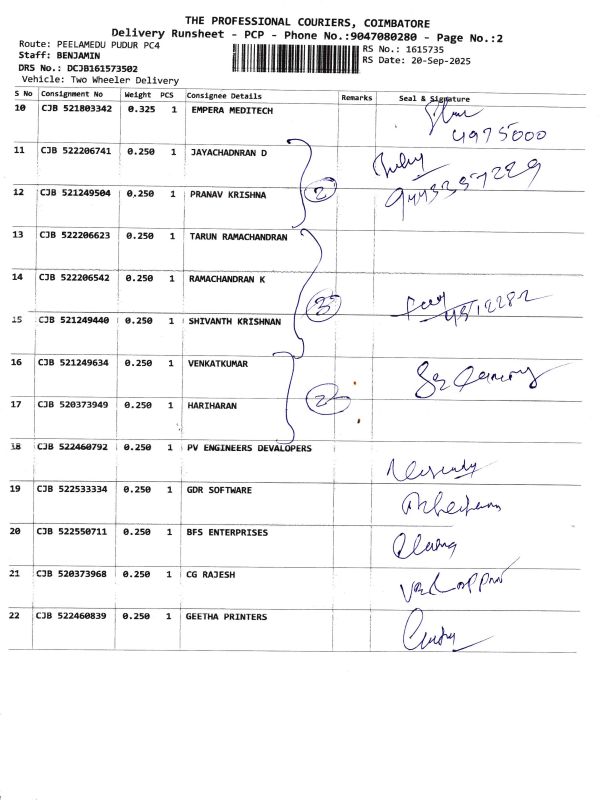 THE PROFESSIONAL COURIERS, COIMBATORE
Delivery Runsheet - PCP - Phone No.:9047080280 - Page No.:2
Route: PEELAMEDU PUDUR PC4
Staff: BENJAMIN
DRS No.: DCJB161573502
Vehicle: Two Wheeler Delivery
RS No.: 1615735
RS Date: 20-Sep-2025
S No Consignment No Weight PCS Consignee Details Remarks Seal & Signature
10 CJB 521803342 0.325 1 EMPERA MEDITECH
4975000
11 CJB 522206741 0.250 1 JAYACHADNRAN D
12 CJB 521249504 0.250 1 PRANAV KRISHNA 2
13 CJB 522206623 0.250 1 TARUN RAMACHANDRAN
14 CJB 522206542 0.250 1 RAMACHANDRAN K
3
15 CJB 521249440 0.250 1 SHIVANTH KRISHNAN
16 CJB 521249634 0.250 1 VENKATKUMAR
17 CJB 520373949 0.250 1 HARIHARAN 2
18 CJB 522460792 0.250 1 PV ENGINEERS DEVALOPERS
19 CJB 522533334 0.250 1 GDR SOFTWARE
20 CJB 522550711 0.250 1 BFS ENTERPRISES
21 CJB 520373968 0.250 1 CG RAJESH
22 CJB 522460839 0.250 1 GEETHA PRINTERS